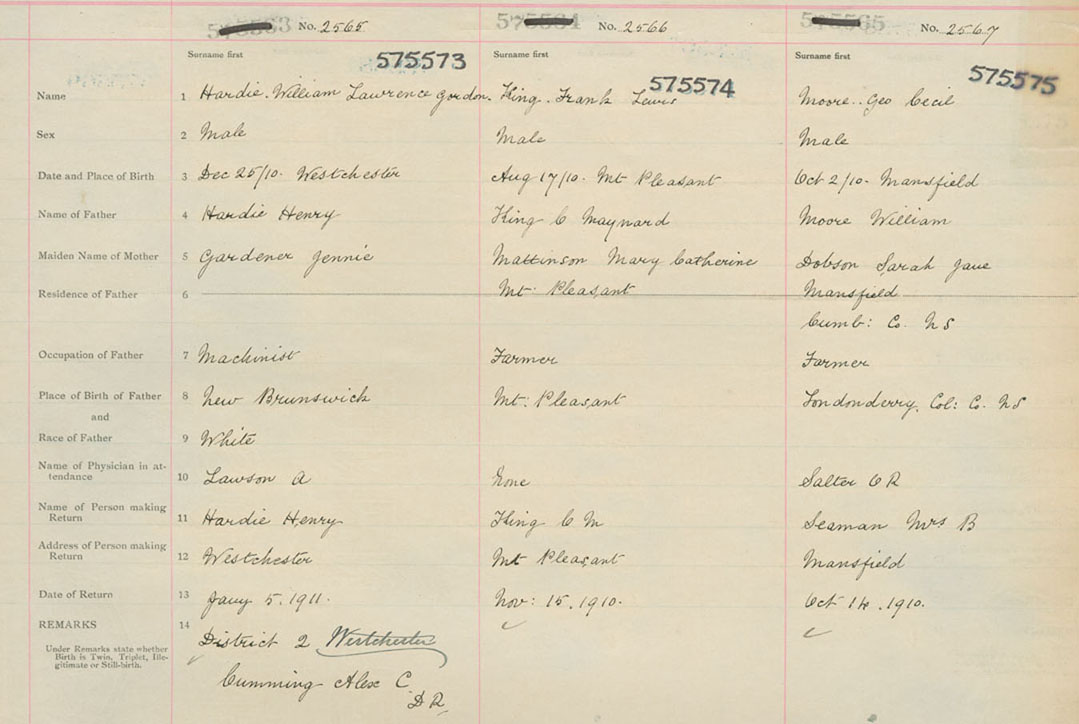 No. 2565 No. 2566 No. 2567
Surname first Surname first Surname first
575573 575574 575575
Name 1 Hardie. William Lawrence Gordon. King. Frank Lewis Moore.. Geo Cecil
Sex 2 Male Male Male
Date and Place of Birth 3 Dec 25/10. Westchester Aug 17/10. Mt Pleasant Oct 2/10. Mansfield
Name of Father 4 Hardie Henry King C Maynard Moore William
Maiden Name of Mother 5 Gardener Jennie Mattinson Mary Catherine Dobson Sarah Jane
Residence of Father 6 Mt. Pleasant Mansfield
Cumb: Co. NS
Occupation of Father 7 Machinist Farmer Farmer
Place of Birth of Father 8 New Brunswick Mt: Pleasant Londonderry. Col: Co. NS
and
Race of Father 9 White
Name of Physician in at-
tendance 10 Lawson A None Salter C R
Name of Person making
Return 11 Hardie Henry King C M Seaman Mrs B
Address of Person making
Return 12 Westchester Mt Pleasant Mansfield
Date of Return 13 Jany 5. 1911. Nov: 15. 1910. Oct 14. 1910.
REMARKS 14 District 2 Westchester
Under Remarks state whether
Birth is Twin, Triplet, Ille-
gitimate or Still-birth.
Cumming Alex C.
D R,